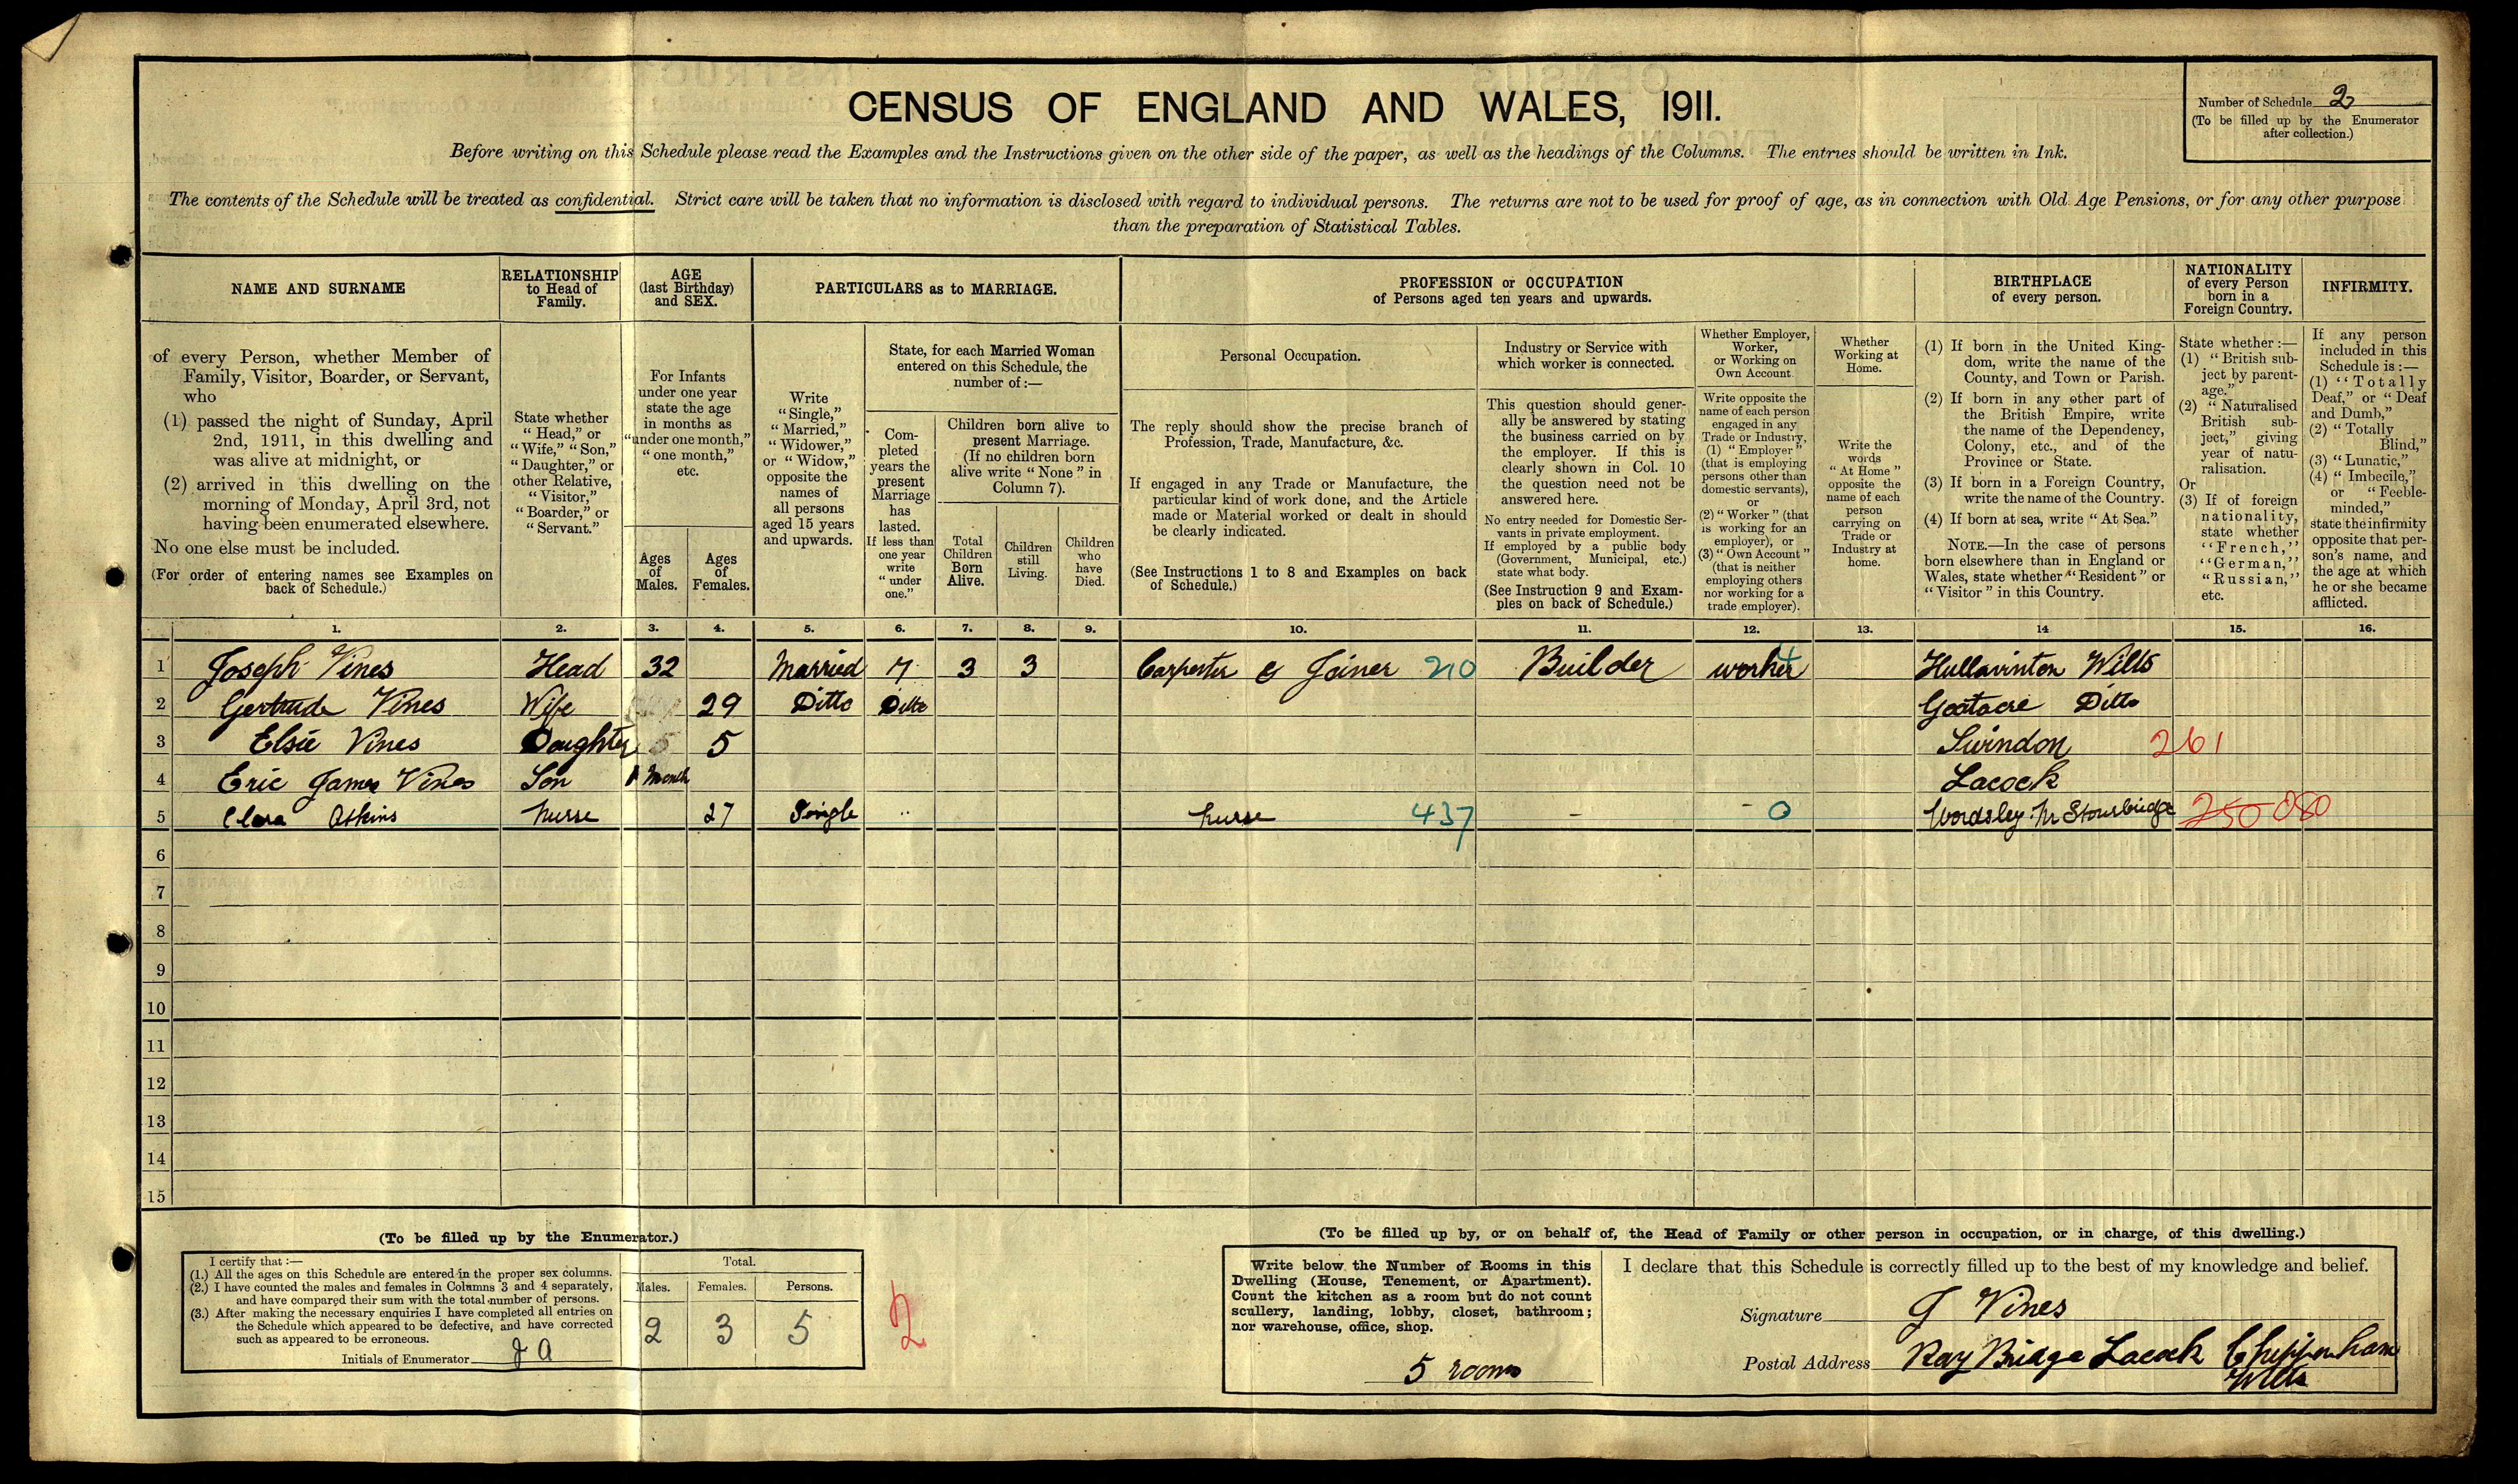 CENSUS OF ENGLAND AND WALES, 1911.
Number of Schedule 2
(To be filled up by the Enumerator
after collection.)
Before writing on this Schedule please read the Examples and the Instructions given on the other side of the paper, as well as the headings of the Columns. The entries should be written in Ink.
The contents of the Schedule will be treated as confidential. Strict care will be taken that no information is disclosed with regard to individual persons. The returns are not to be used for proof of age, as in connection with Old Age Pensions, or for any other purpose
than the preparation of Statistical Tables.
NAME AND SURNAME
of every Person, whether Member of
Family, Visitor, Boarder, or Servant,
who
(1) passed the night of Sunday, April
2nd, 1911, in this dwelling and
was alive at midnight, or
(2) arrived in this dwelling on the
morning of Monday, April 3rd, not
having been enumerated elsewhere.
No one else must be included.
(For order of entering names see Examples on
back of Schedule.)
RELATIONSHIP
to Head of
Family.
State whether
"Head," or
"Wife," "Son,"
"Daughter," or
other Relative,
"Visitor,"
"Boarder," or
"Servant."
AGE
(last Birthday)
and SEX.
For Infants
under one year
state the age
in months as
"under one month,"
"one month,"
etc.
Ages
of
Males.
Ages
of
Females.
PARTICULARS as to MARRIAGE.
Write
"Single,"
"Married,"
"Widower,"
or "Widow,"
opposite the
names of
all persons
aged 15 years
and upwards.
State, for each Married Woman
entered on this Schedule, the
number of :—
Com-
pleted
years the
present
Marriage
has
lasted.
If less than
one year
write
"under
one."
Children born alive to
present Marriage.
(If no children born
alive write "None" in
Column 7).
Total
Children
Born
Alive.
Children
still
Living.
Children
who
have
Died.
PROFESSION or OCCUPATION
of Persons aged ten years and upwards.
Personal Occupation.
The reply should show the precise branch of
Profession, Trade, Manufacture, &c.
If engaged in any Trade or Manufacture, the
particular kind of work done, and the Article
made or Material worked or dealt in should
be clearly indicated.
(See Instructions 1 to 8 and Examples on back
of Schedule.)
Industry or Service with
which worker is connected.
This question should gener-
ally be answered by stating
the business carried on by
the employer. If this is
clearly shown in Col. 10
the question need not be
answered here.
No entry needed for Domestic Ser-
vants in private employment.
If employed by a public body
(Government, Municipal, etc.)
state what body.
(See Instruction 9 and Exam-
ples on back of Schedule.)
Whether Employer,
Worker,
or Working on
Own Account.
Write opposite the
name of each person
engaged in any
Trade or Industry,
(1) "Employer"
(that is employing
persons other than
domestic servants),
or
(2) "Worker" (that
is working for an
employer), or
(3) "Own Account"
(that is neither
employing others
nor working for a
trade employer).
Whether
Working at
Home.
Write the
words
"At Home"
opposite the
name of each
person
carrying on
Trade or
Industry at
home.
BIRTHPLACE
of every person.
(1) If born in the United King-
dom, write the name of the
County, and Town or Parish.
(2) If born in any other part of
the British Empire, write
the name of the Dependency,
Colony, etc., and of the
Province or State.
(3) If born in a Foreign Country,
write the name of the Country.
(4) If born at sea, write "At Sea."
NOTE.—In the case of persons
born elsewhere than in England or
Wales, state whether "Resident" or
"Visitor" in this Country.
NATIONALITY
of every Person
born in a
Foreign Country.
State whether :—
(1) "British sub-
ject by parent-
age."
(2) "Naturalised
British sub-
ject," giving
year of natu-
ralisation.
Or
(3) If of foreign
nationality,
state whether
"French,"
"German,"
"Russian,"
etc.
INFIRMITY.
If any person
included in this
Schedule is :—
(1) "Totally
Deaf," or "Deaf
and Dumb,"
(2) "Totally
Blind,"
(3) "Lunatic,"
(4) "Imbecile,"
or "Feeble-
minded,"
state the infirmity
opposite that per-
son's name, and
the age at which
he or she became
afflicted.
1. 2. 3. 4. 5. 6. 7. 8. 9. 10. 11. 12. 13. 14 15. 16.
1 Joseph Vines Head 32 Married 7 3 3 Carpenter & Joiner 210 Builder worker Hullavinton Wilts
2 Gertrude Vines Wife 29 Ditto Ditto Goatacre Ditto
3 Elsie Vines Daughter 5 5 Swindon 261
4 Eric James Vines Son 1 Month Lacock
5 Clara Atkins Nurse 27 Single Nurse 437 – 0 Wordsley Nr Stourbridge 250 080
6
7
8
9
10
11
12
13
14
15
(To be filled up by the Enumerator.)
I certify that :—
(1.) All the ages on this Schedule are entered in the proper sex columns.
(2.) I have counted the males and females in Columns 3 and 4 separately,
and have compared their sum with the total number of persons.
(3.) After making the necessary enquiries I have completed all entries on
the Schedule which appeared to be defective, and have corrected
such as appeared to be erroneous.
Initials of Enumerator J A
Total.
Males. Females. Persons.
2 3 5
2
(To be filled up by, or on behalf of, the Head of Family or other person in occupation, or in charge, of this dwelling.)
Write below the Number of Rooms in this
Dwelling (House, Tenement, or Apartment).
Count the kitchen as a room but do not count
scullery, landing, lobby, closet, bathroom;
nor warehouse, office, shop.
5 rooms
I declare that this Schedule is correctly filled up to the best of my knowledge and belief.
Signature J Vines
Postal Address Ray Bridge Lacock Chippenham
Wilts